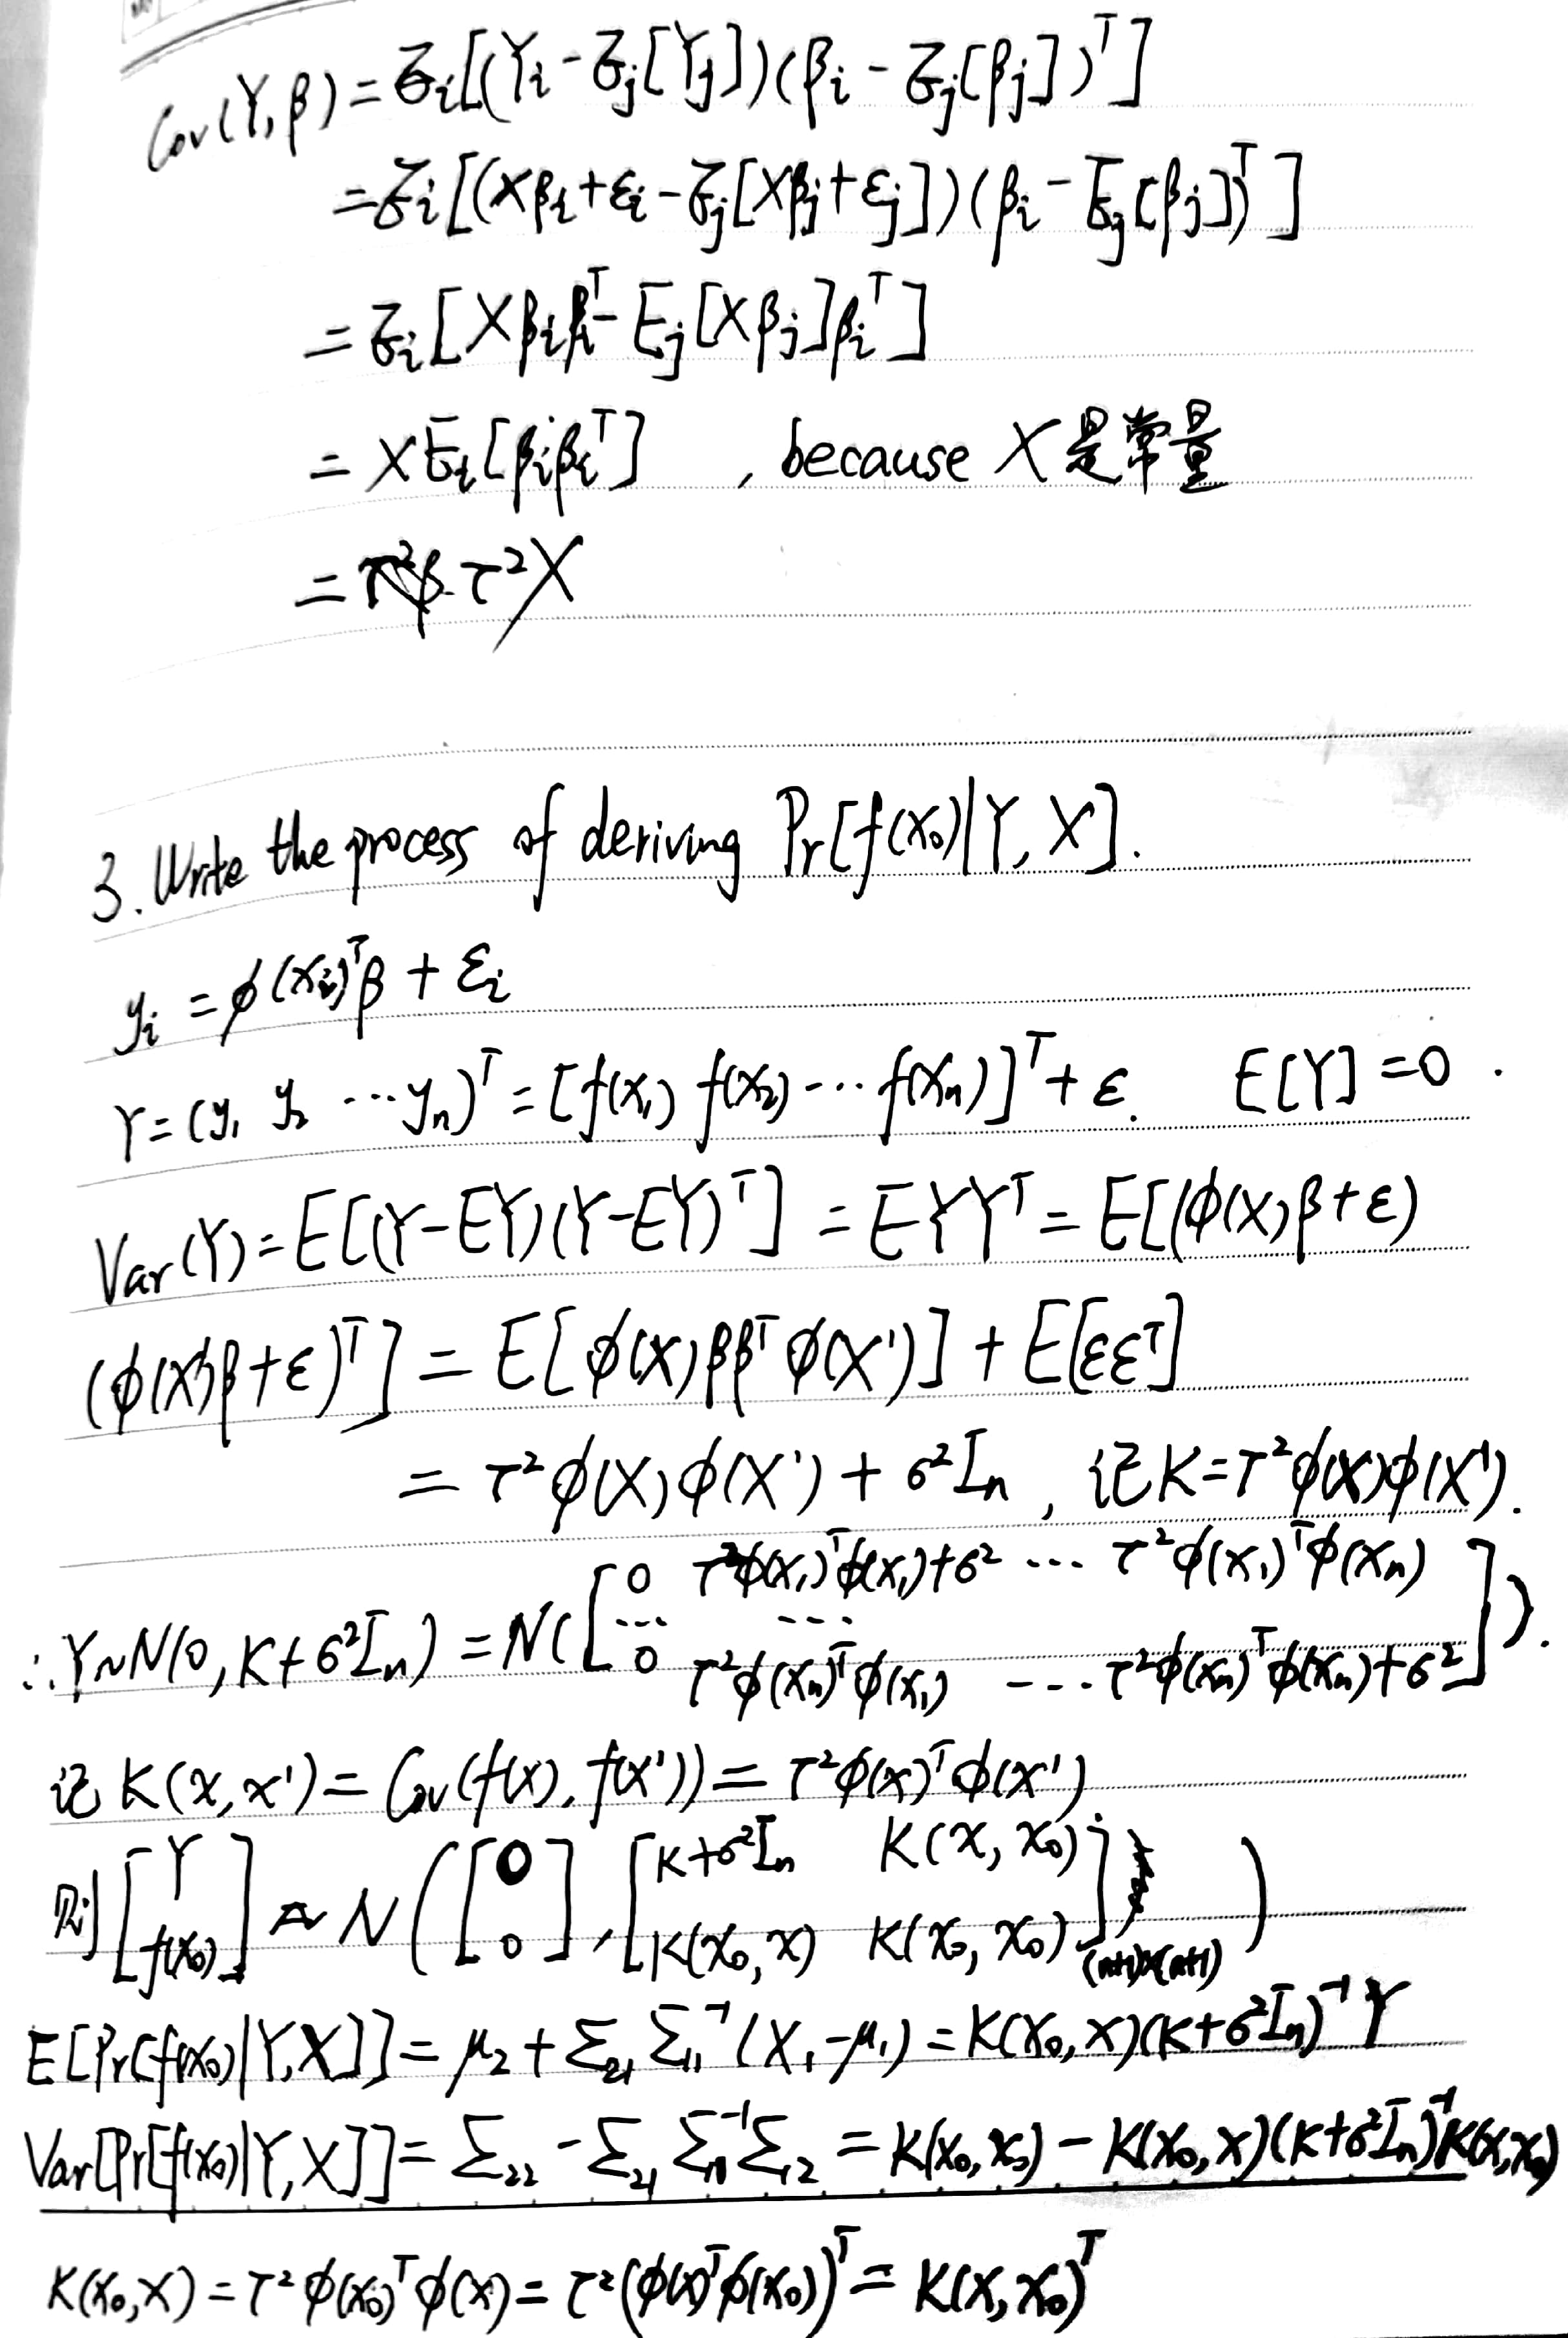 Cov(Y, β) = E_i[(Y_i - E_j[Y_j])(β_i - E_j[β_j])^T]
= E_i[(Xβ_i + ε_i - E_j[Xβ_j + ε_j])(β_i - E_j[β_j])^T]
= E_i[Xβ_iβ_i^T - E_j[Xβ_j]β_i^T]
= X E_i[β_iβ_i^T] , because X 是常量
= τ²X
3. Write the process of deriving Pr[f(x₀)|Y, X].
y_i = φ(x_i)^Tβ + ε_i
Y = (y₁ y₂ ⋯ y_n)^T = [f(x₁) f(x₂) ⋯ f(x_n)]^T + ε. E[Y] = 0 .
Var(Y) = E[(Y-EY)(Y-EY)^T] = EYY^T = E[(φ(X)β+ε)
(φ(X')β+ε)^T] = E[φ(X)ββ^Tφ(X')] + E[εε^T]
= τ²φ(X)φ(X') + σ²I_n , 记K=τ²φ(X)φ(X').
∴ Y~N(0, K+σ²I_n) = N([0 τ²φ(x₁)^Tφ(x₁)+σ² ⋯ τ²φ(x₁)^Tφ(x_n)
⋯ ⋯
0 τ²φ(x_n)^Tφ(x₁) ⋯ τ²φ(x_n)^Tφ(x_n)+σ²]).
记 K(x, x') = Cov(f(x), f(x')) = τ²φ(x)^Tφ(x').
则 [Y f(x₀)] ~ N([0 0], [K+σ²I_n K(x, x₀) K(x₀, x) K(x₀, x₀)]_(n+1)×(n+1))
E[Pr[f(x₀)|Y,X]] = μ₂ + Σ₂₁Σ₁₁⁻¹(X₁-μ₁) = K(x₀, x)(K+σ²I_n)⁻¹Y
Var[Pr[f(x₀)|Y,X]] = Σ₂₂ - Σ₂₁Σ₁₁⁻¹Σ₁₂ = K(x₀, x₀) - K(x₀, x)(K+σ²I_n)⁻¹K(x, x₀)
K(x₀, x) = τ²φ(x₀)^Tφ(x) = τ²(φ(x)^Tφ(x₀))^T = K(x, x₀)^T